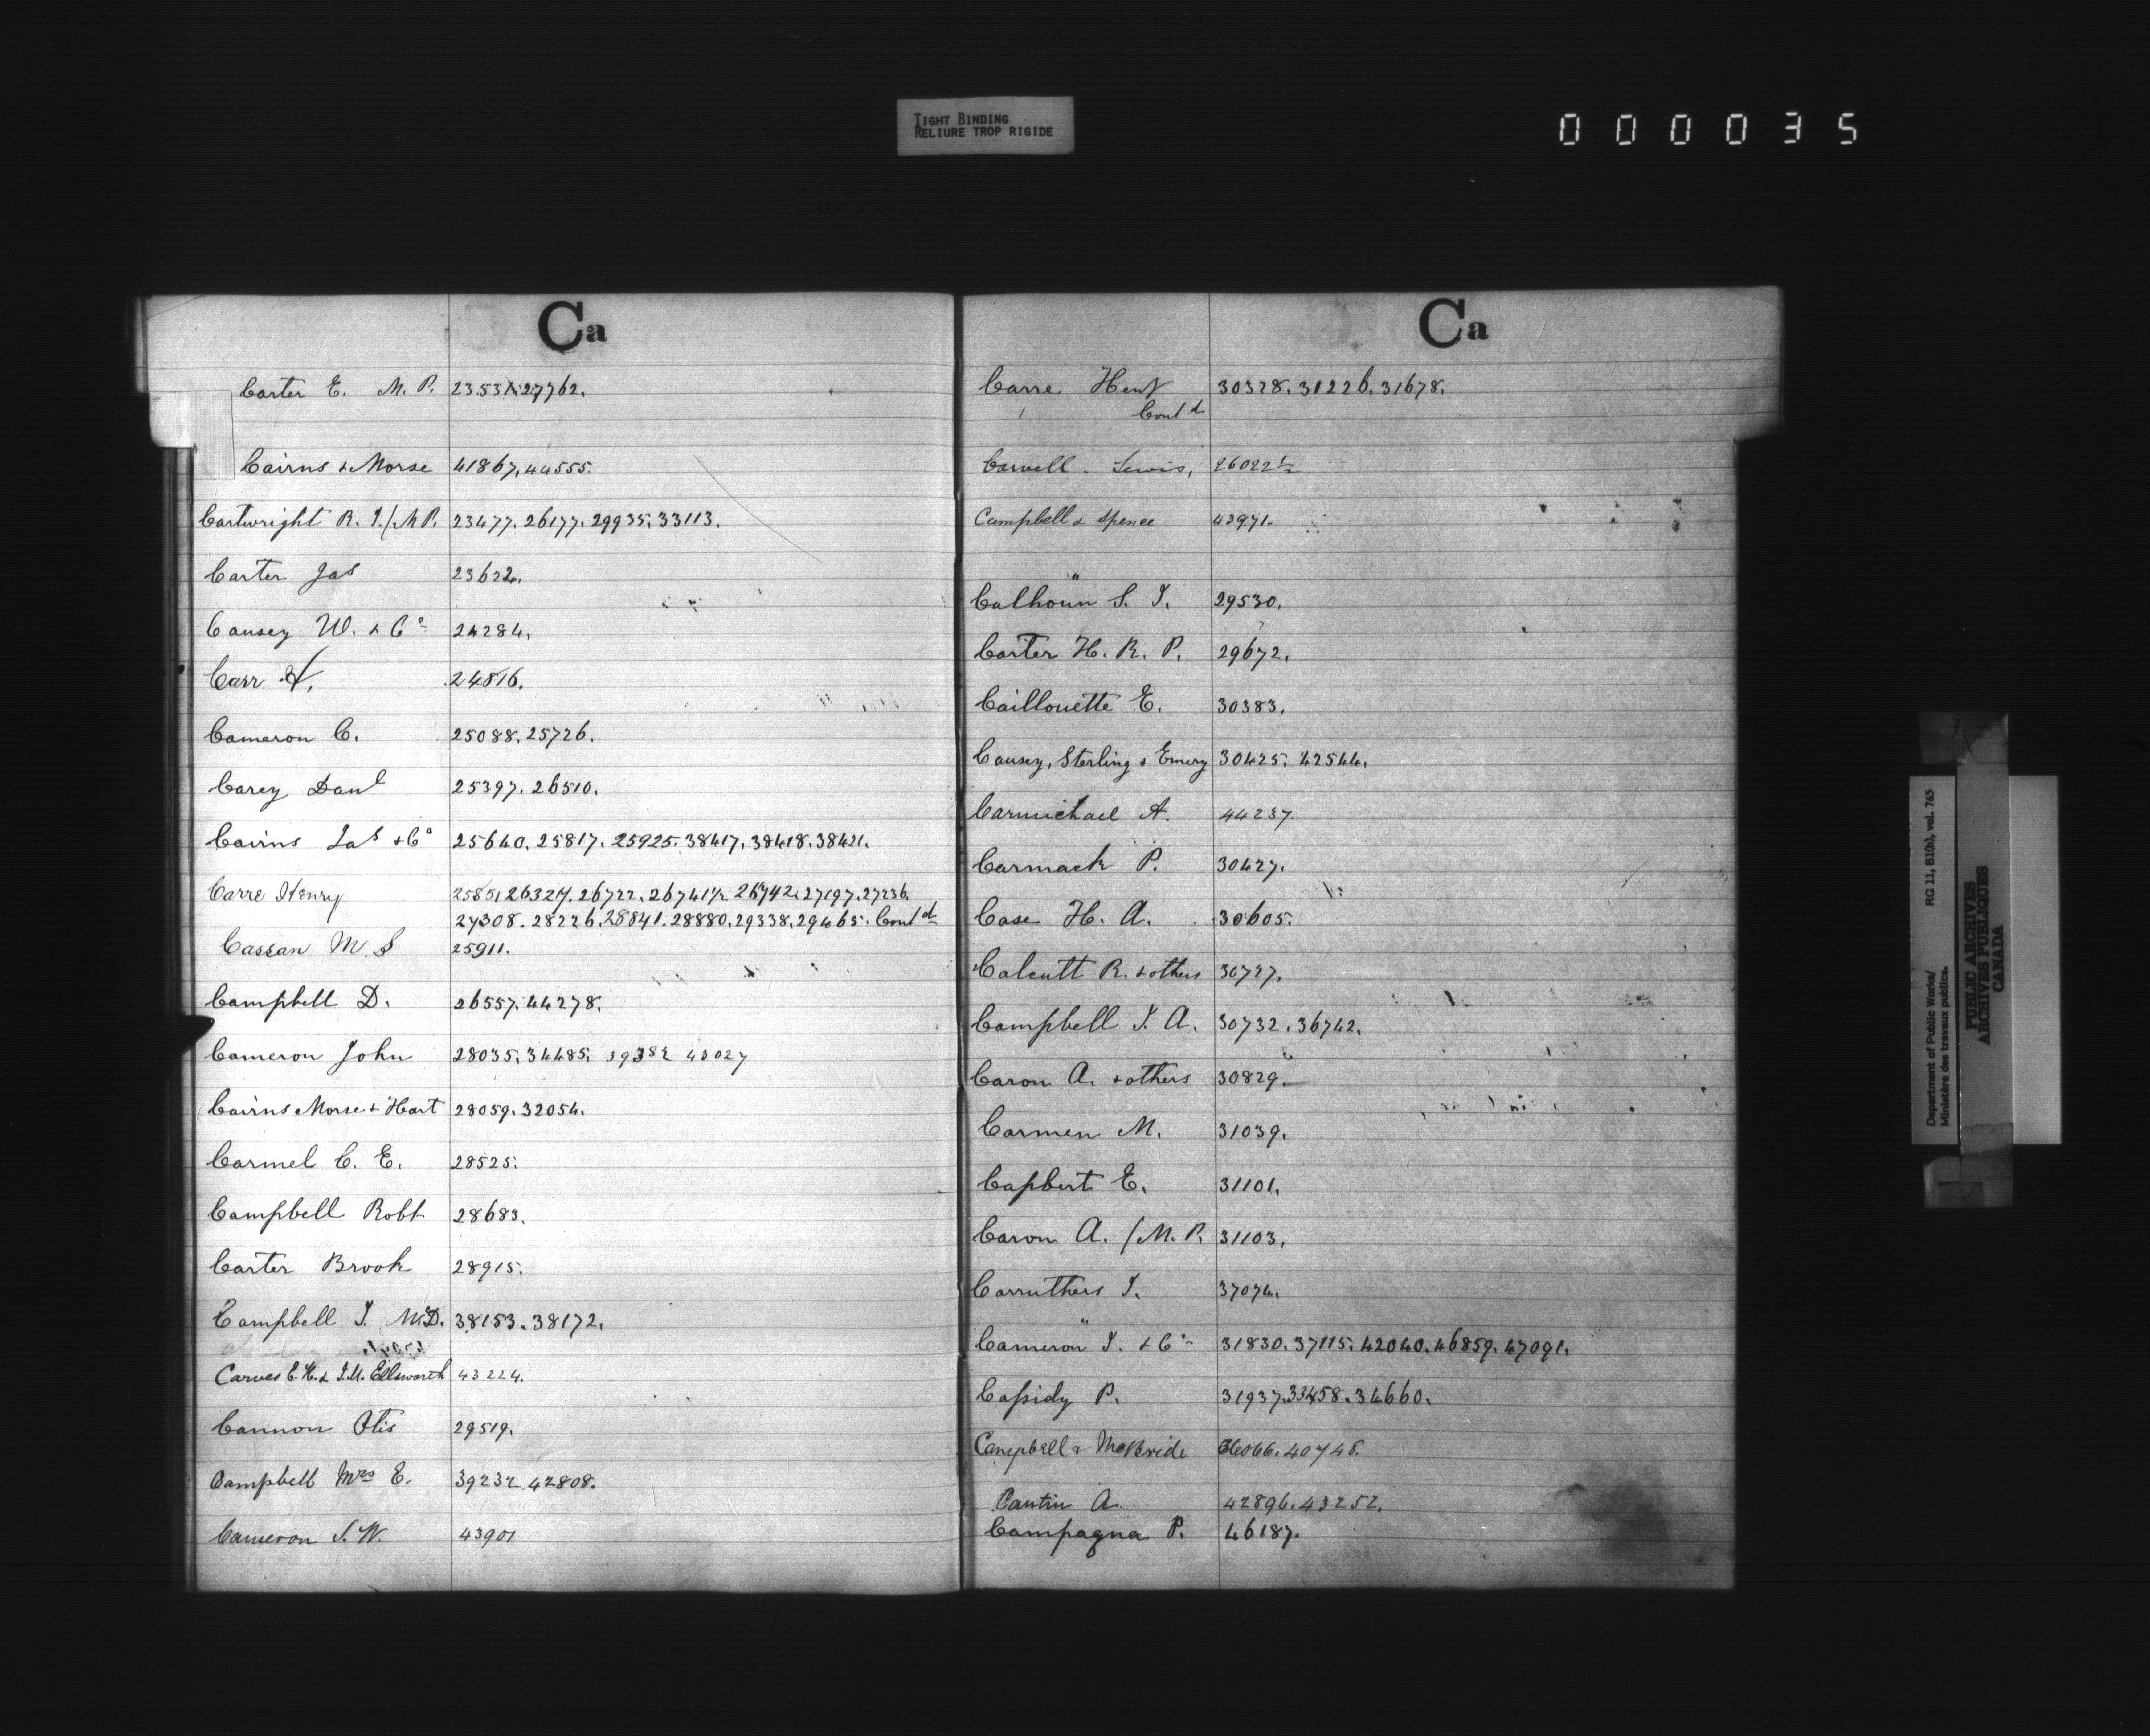 TIGHT BINDING
RELIURE TROP RIGIDE
000035
Ca
Carter E. M. P. 23531.27762.
Cairns & Morse 41867,44555.
Cartwright R. J./M.P. 23477.26177.29935.33113.
Carter Jas 23622.
Causey W. & Co 24284.
Carr A. 24816.
Cameron C. 25088.25726.
Carey Danl 25397.26510.
Cairns Jas & Co 25640.25817.25925.38417.38418.38421.
Carre Henry 25851 26327½.26722.26741½ 26742.27197.27236.
27308.28226.28841.28880.29338.29465. Contd
Cassan M. S 25911.
Campbell D. 26557.44278.
Cameron John 28035.34485. 39382 43027
Cairns Morse & Hart 28059.32054.
Carmel C. E. 28525.
Campbell Robt 28683.
Carter Brook 28915.
Campbell J. McD. 38153.38172.
Carues E.H. & J.M. Ellsworth 43224.
Cannon Otis 29519.
Campbell Mrs E. 39232 42808.
Cameron S. W. 43901
Ca
Carre Heny 30328.31226.31678.
Contd
Carvell Lewis, 26022½
Campbell & Spence 42971.
Calhoun S. J. 29530.
Carter H. R. P. 29672.
Caillouette E. 30383.
Causey, Sterling & Emery 30425.42544.
Carmichael A. 44237
Carmack P. 30427.
Case H. A. 30605.
Calcutt R. & others 30727.
Campbell J. A. 30732.36742.
Caron A. & others 30829.
Carmen M. 31039.
Capbert E. 31101.
Caron A. /M. P. 31103.
Carruthers J. 37074.
Cameron J. & Co 31830.37115.42040.46859.47091.
Cassidy P. 31937.33458.34660.
Campbell & McBride 36066.40748.
Cantin A. 42896.43252.
Campagna P. 46187.
Department of Public Works/ RG 11, B1(b), vol. 765
Ministère des travaux publics.
PUBLIC ARCHIVES
ARCHIVES PUBLIQUES
CANADA